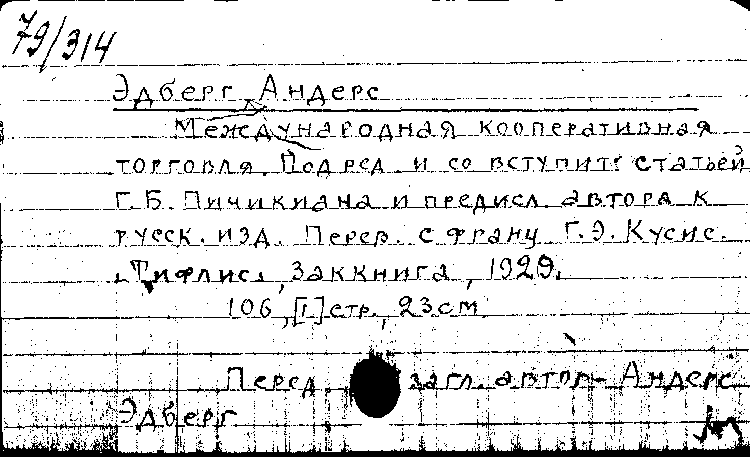 79/314
Эдберг, Андерс
Международная кооперативная
торговля. Под ред. и со вступит. статьей
Г. Б. Пичикиана и предисл. автора к
русск. изд. Перев. с франц. Г. Э. Кусис.
"Тифлис", Заккнига, 1929.
106, [1] стр., 23 см
Перед загл. автор - Андерс
Эдберг